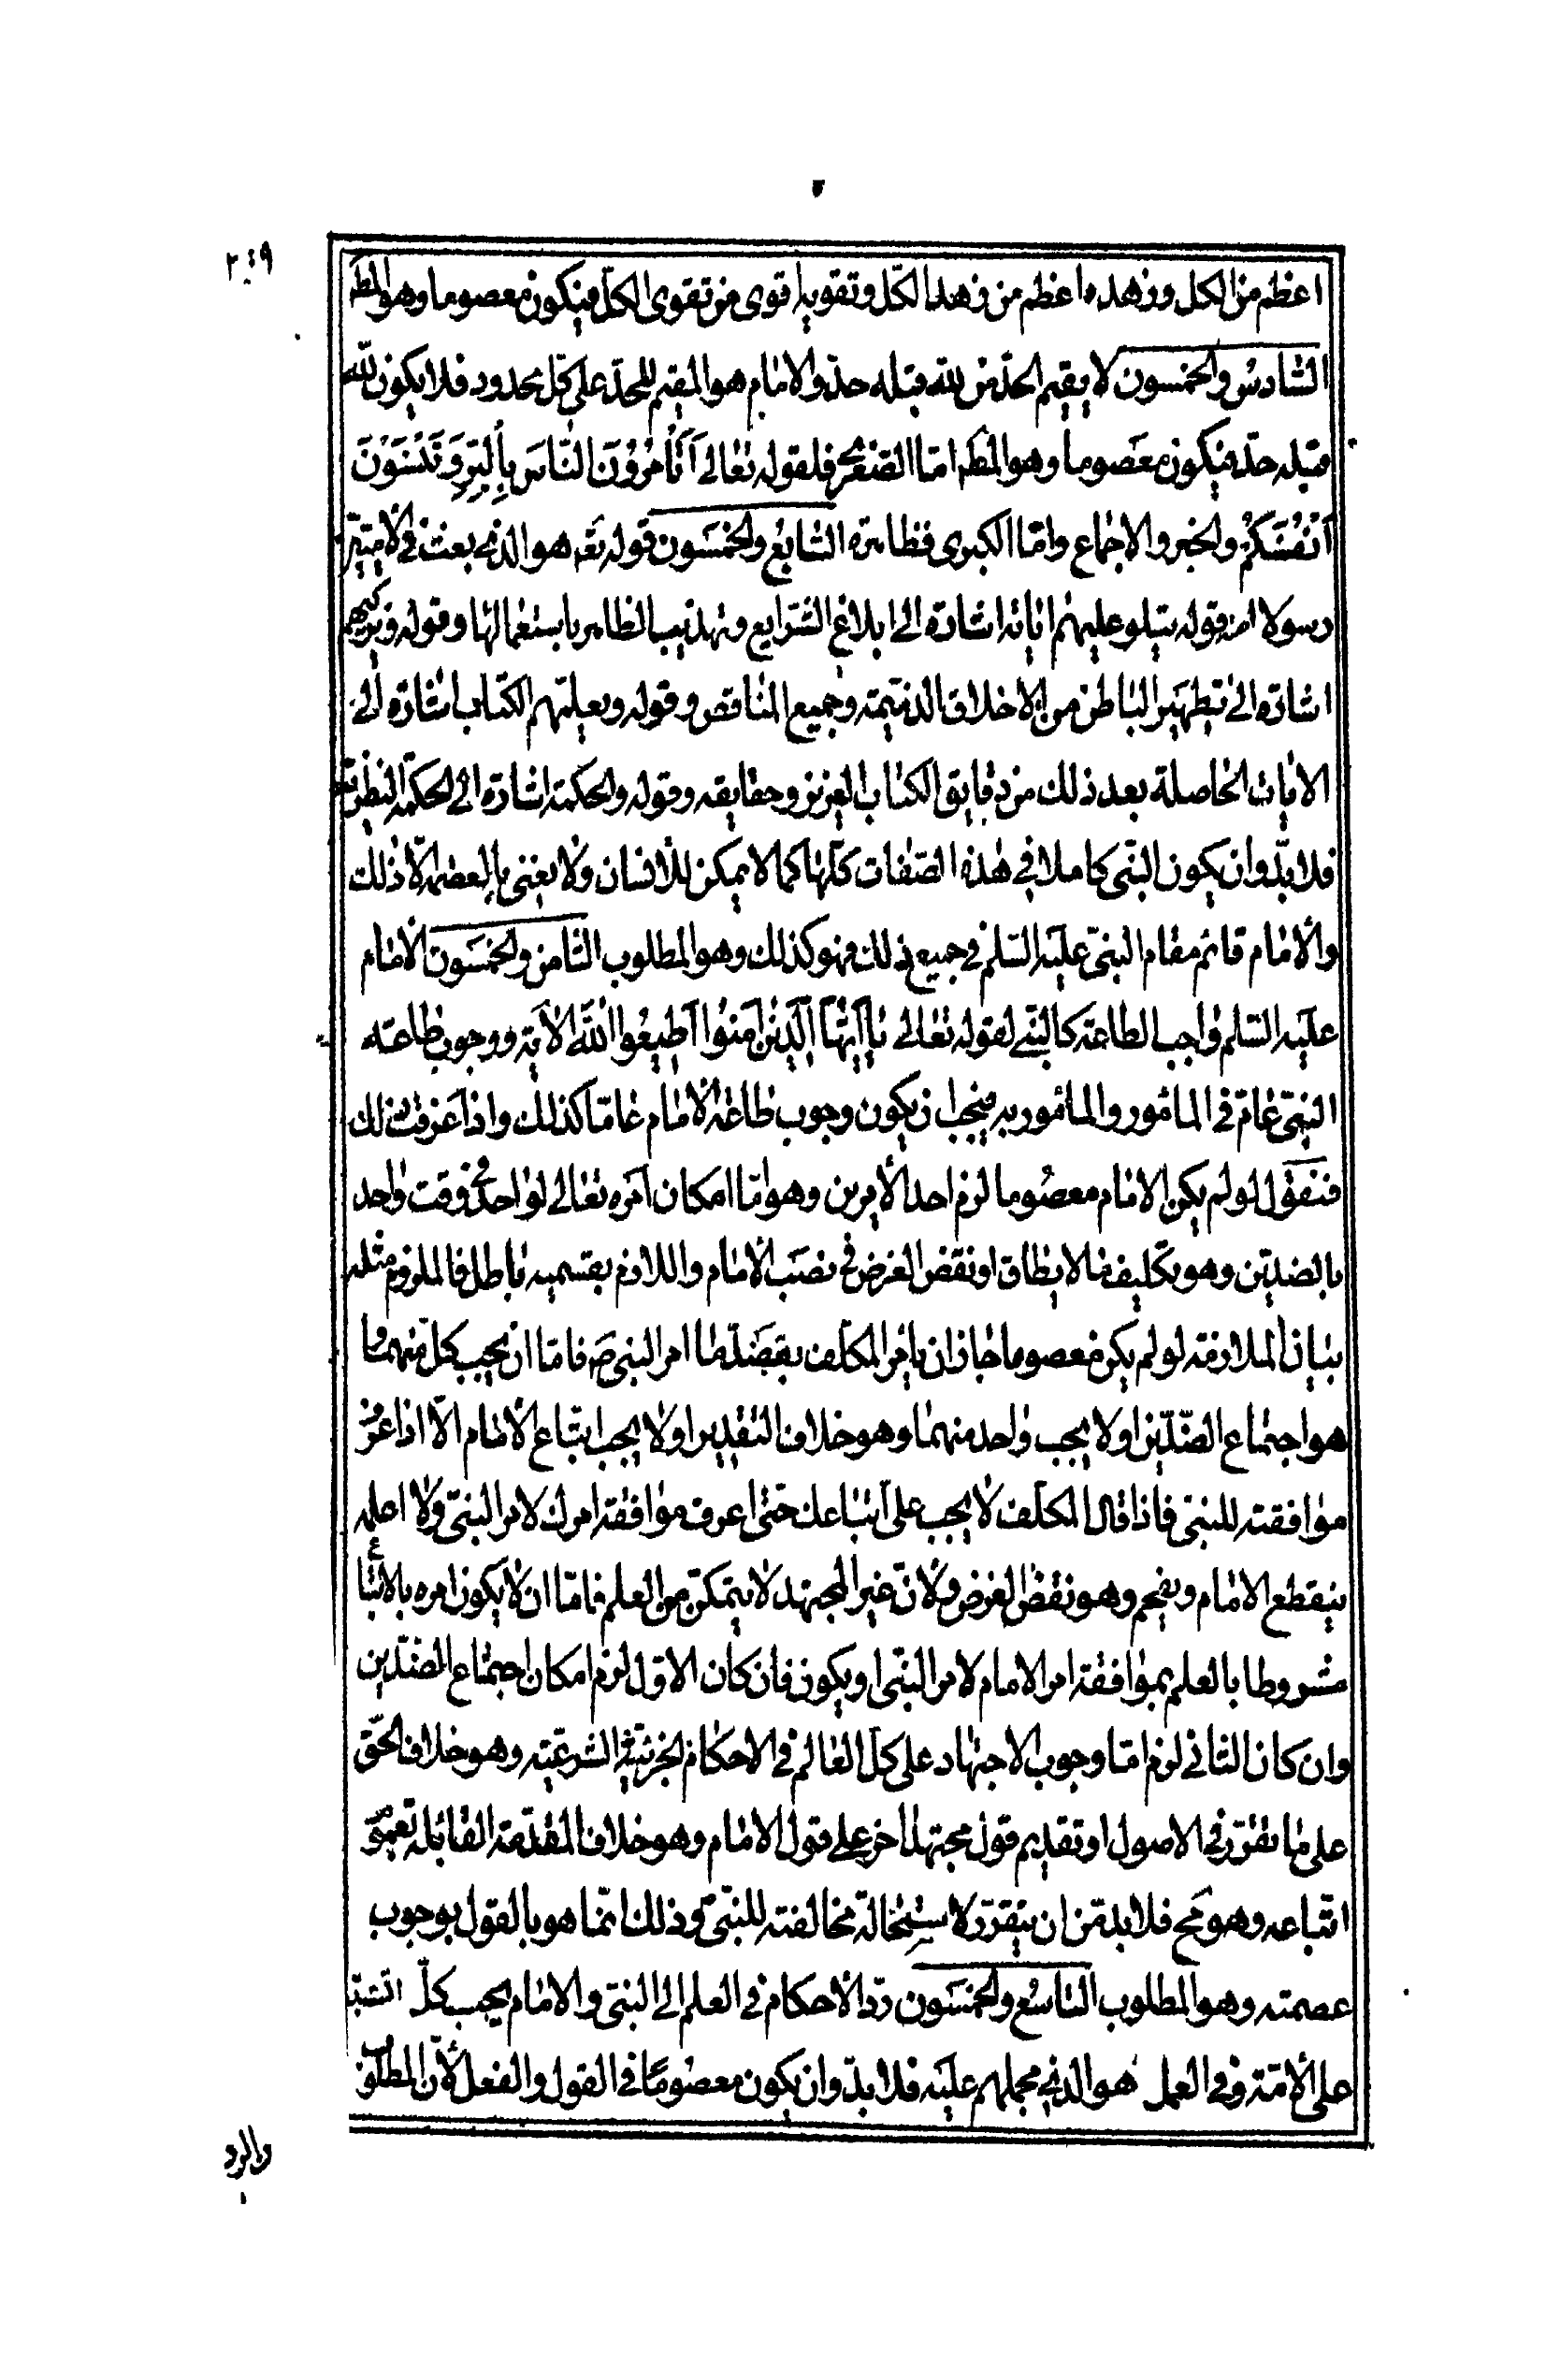 ٢٤٩
اعظم من الكل وزهده اعظم من زهد الكل وتقويه اقوى من تقوى الكل فيكون معصوما وهو المط
السّادس والخمسون لا يقيم الحدّ من للّه قبله حدّ والامام هو المقيم للحدّ على كلّ محدود فلا يكون للّه
قبله حدّ فيكون معصوما وهو المط امّا الصّغرى فلقوله تعالى اَتَأْمُرُونَ النّاسَ بِالْبِرِّ وَتَنْسَوْنَ
اَنْفُسَكُمْ والخبر والاجماع وامّا الكبرى فظاهرة السّابع والخمسون قوله تعه هو الذى بعث فى الاميّين
رسولا منهم قوله يتلو عليهم اياته اشارة الى ابلاغ الشرايع وتهذيب الظاهر باستعمالها وقوله ويزكيهم
اشارة الى تطهير الباطن من الاخلاق الذميمة وجميع المناقص وقوله ويعلمهم الكتاب اشارة الى
الايات الحاصلة بعد ذلك من دقايق الكتاب العزيز وحقايقه وقوله والحكمة اشارة الى الحكمة النظرية
فلا بدّ وان يكون النبّى كاملا فى هذه الصّفات كلّها كما لا يمكن للانسان ولا يعنى بالعصمة الّا ذلك
والامام قائم مقام النبىّ عليه السّلم فى جميع ذلك فهو كذلك وهو المطلوب الثامن والخمسون الامام
عليه السّلم واجب الطاعة كالنبّى لقوله تعالى يا اَيُّهَا الَّذينَ آمَنُوا اَطيعُوا اللّهَ الآية ووجوب طاعة
النبىّ عامّ فى المامور والمامور به فيجب ان يكون وجوب طاعة الامام عامّا كذلك واذا عرفت ذلك
فنقول لو لم يكن الامام معصوما لزم احد الامرين وهو امّا امكان امره تعالى لواحد فى وقت واحد
بالضدّين وهو تكليف ما لا يطاق او نقض الغرض فى نصب الامام واللازم بقسميه باطل فالملزوم مثله
بيان الملازمة لو لم يكن معصوما جاز ان يامر المكلّف بضدّ ما امر النبى ص فامّا ان يجب كلّ منهما و
هو اجتماع الضّدّين او لا يجب واحد منهما وهو خلاف التقدير او لا يجب اتّباع الامام الّا اذا عرف
موافقته للنبىّ فاذا قال المكلّف لا يجب علىّ اتباعك حتى اعرف موافقة امرك لامر النبىّ ولا اعلمه
ينقطع الامام ويفحم وهو نقض الغرض ولانّ غير المجتهد لا يتمكّن من العلم فامّا ان لا يكون امره بالاتباع
مشروطا بالعلم بموافقة امر الامام لامر النبّى او يكون فان كان الاول لزم امكان اجتماع الضدّين
وان كان الثانى لزم امّا وجوب الاجتهاد على كلّ العالم فى الاحكام الجزئية الشرعيّة وهو خلاف الحقّ
على ما تقرّر فى الاصول او تقديم قول مجتهد اخر على قول الامام وهو خلاف المقدّمة القائلة بعموم
اتّباعه وهو مح فلا بد من ان يتقرّر لاستحالة مخالفته للنبىّ وذلك انّما هو بالقول بوجوب
عصمته وهو المطلوب التاسع والخمسون ردّ الاحكام فى العلم الى النبىّ والامام يجب كلّ
على الامّة وفى العمل هو الذى يحملهم عليه فلا بدّ وان يكون معصومًا فى القول والفعل لانّ المطلوب
والرد